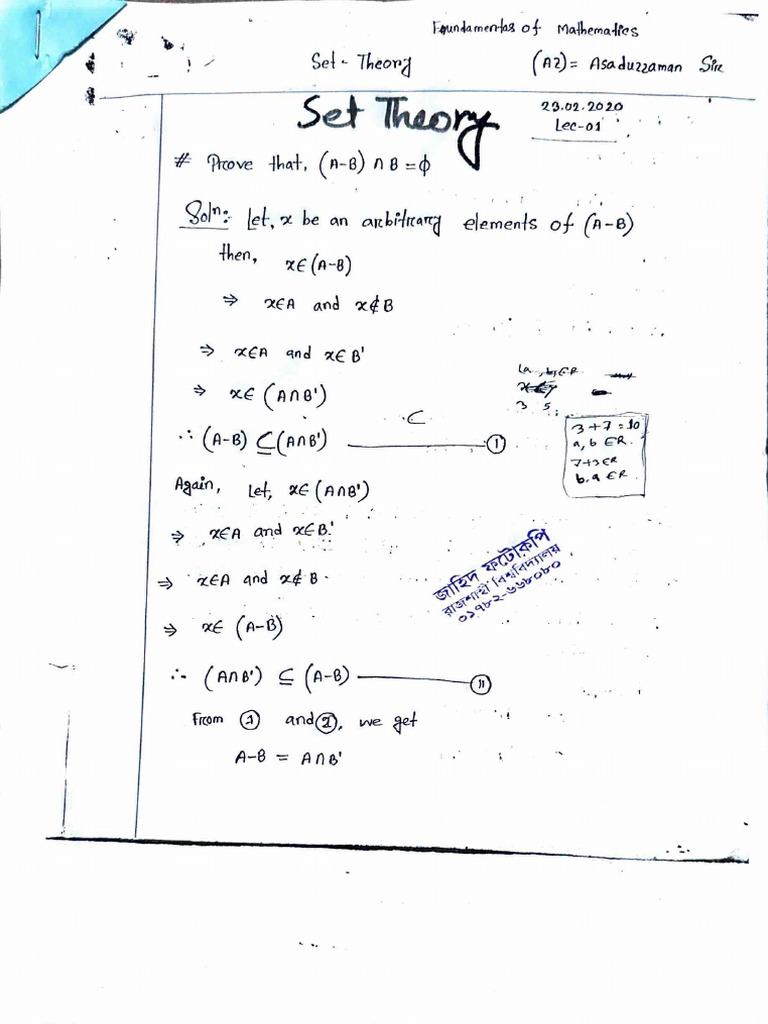 Foundamentas of Mathematics
Set - Theory (AZ) = Asaduzzaman Sir
Set Theory
23.02.2020
Lec-01
# Prove that, (A-B) ∩ B = ϕ
Solⁿ: Let, x be an arbitrary elements of (A-B)
then, x∈(A-B)
⇒ x∈A and x∉B
⇒ x∈A and x∈B'
⇒ x∈ (A∩B')
∴ (A-B) ⊆ (A∩B') ①
3 5
3+7=10
a, b ∈R.
7+3∈R
b, a ∈R.
Again, Let, x∈(A∩B')
⇒ x∈A and x∈B'
⇒ x∈A and x∉B
⇒ x∈ (A-B)
∴ (A∩B') ⊆ (A-B) ⑪
From ① and ②, we get
A-B = A∩B'
জাহিদ ফটোকপি
রাজশাহী বিশ্ববিদ্যালয়
০১৭৮২-৬৬৮০৮০